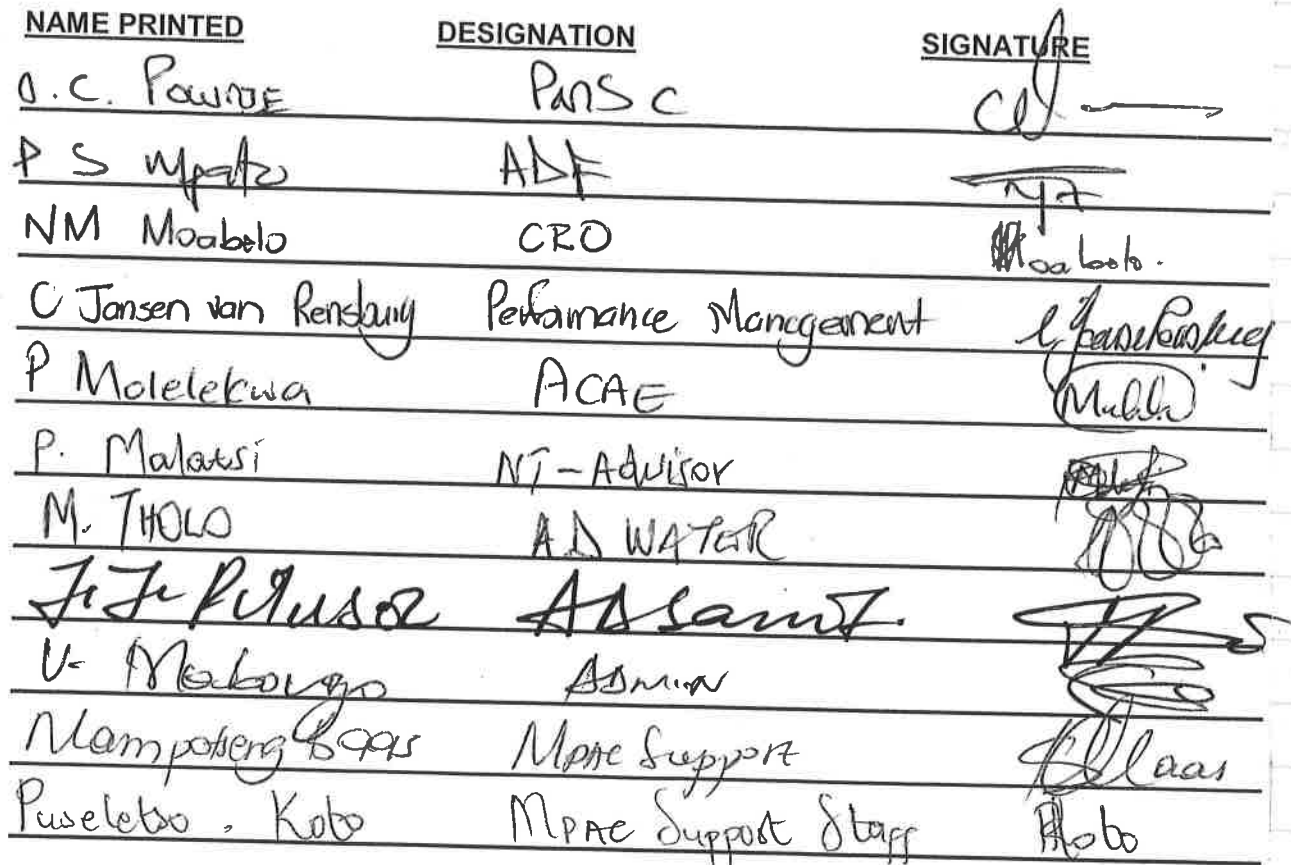 NAME PRINTED DESIGNATION SIGNATURE
O.C. PANSC
P S Mpato ADF
NM Moabelo CRO Moabelo.
C Jansen van Rensburg Performance Management
P Molelekwa ACAE
P. Malatsi NT-Advisor
M. THOLO AD WATER
AD Sanit.
V- ADMIN
Mampotseng MPAC Support
Puseletso. Kobo MPAC Support Staff Kobo